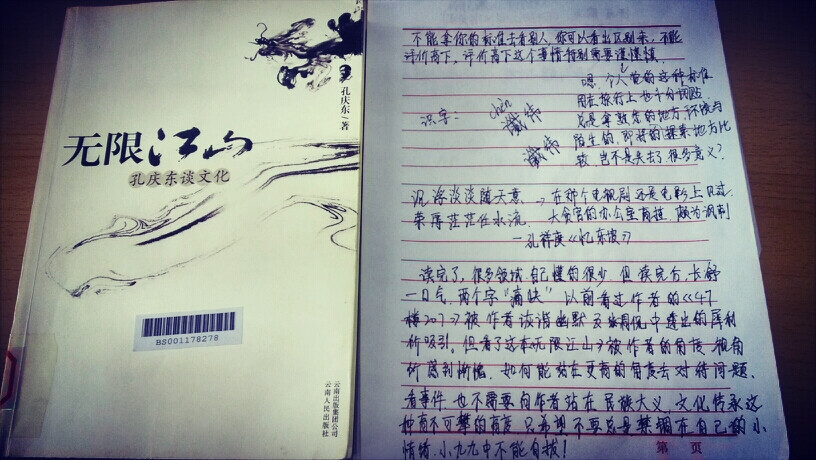 孔庆东/著
无限江山
孔庆东谈文化
BS001178278
云南出版集团公司
云南人民出版社
不能拿你的标准去看别人,你可以看出区别来,不能
评价高下。评价高下这个事情特别需要谨慎。
嗯,个人觉的这种标准
用在旅行上也十分词贴
总是拿熟悉的地方,环境与
陌生的,即将的探索地方比
较,岂不是失去了很多意义?
识字: chèn
谶纬
谶纬
沉浮淡淡随天意, → 在那个电视剧还是电影上见过.
荣辱茫茫任水流. 大贪官的办公室有挂 颇为讽刺
—孔祥庚《忆东坡》
读完了,很多领域自己懂的很少 但读完后,长舒
一口气,两个字“痛快” 以前看过作者的《47
楼207》被作者诙谐幽默及 中透出的犀利
所吸引。但看了这本《无限江山》被作者的角度,视角
所 到惭愧. 如何能站在更高的角度去对待问题、
看事件 也不需要向作者站在民族大义、文化传承这
种高不可攀的高度 只希望不要总是禁锢在自己的小
情绪、小九九中不能自拔!
第 页